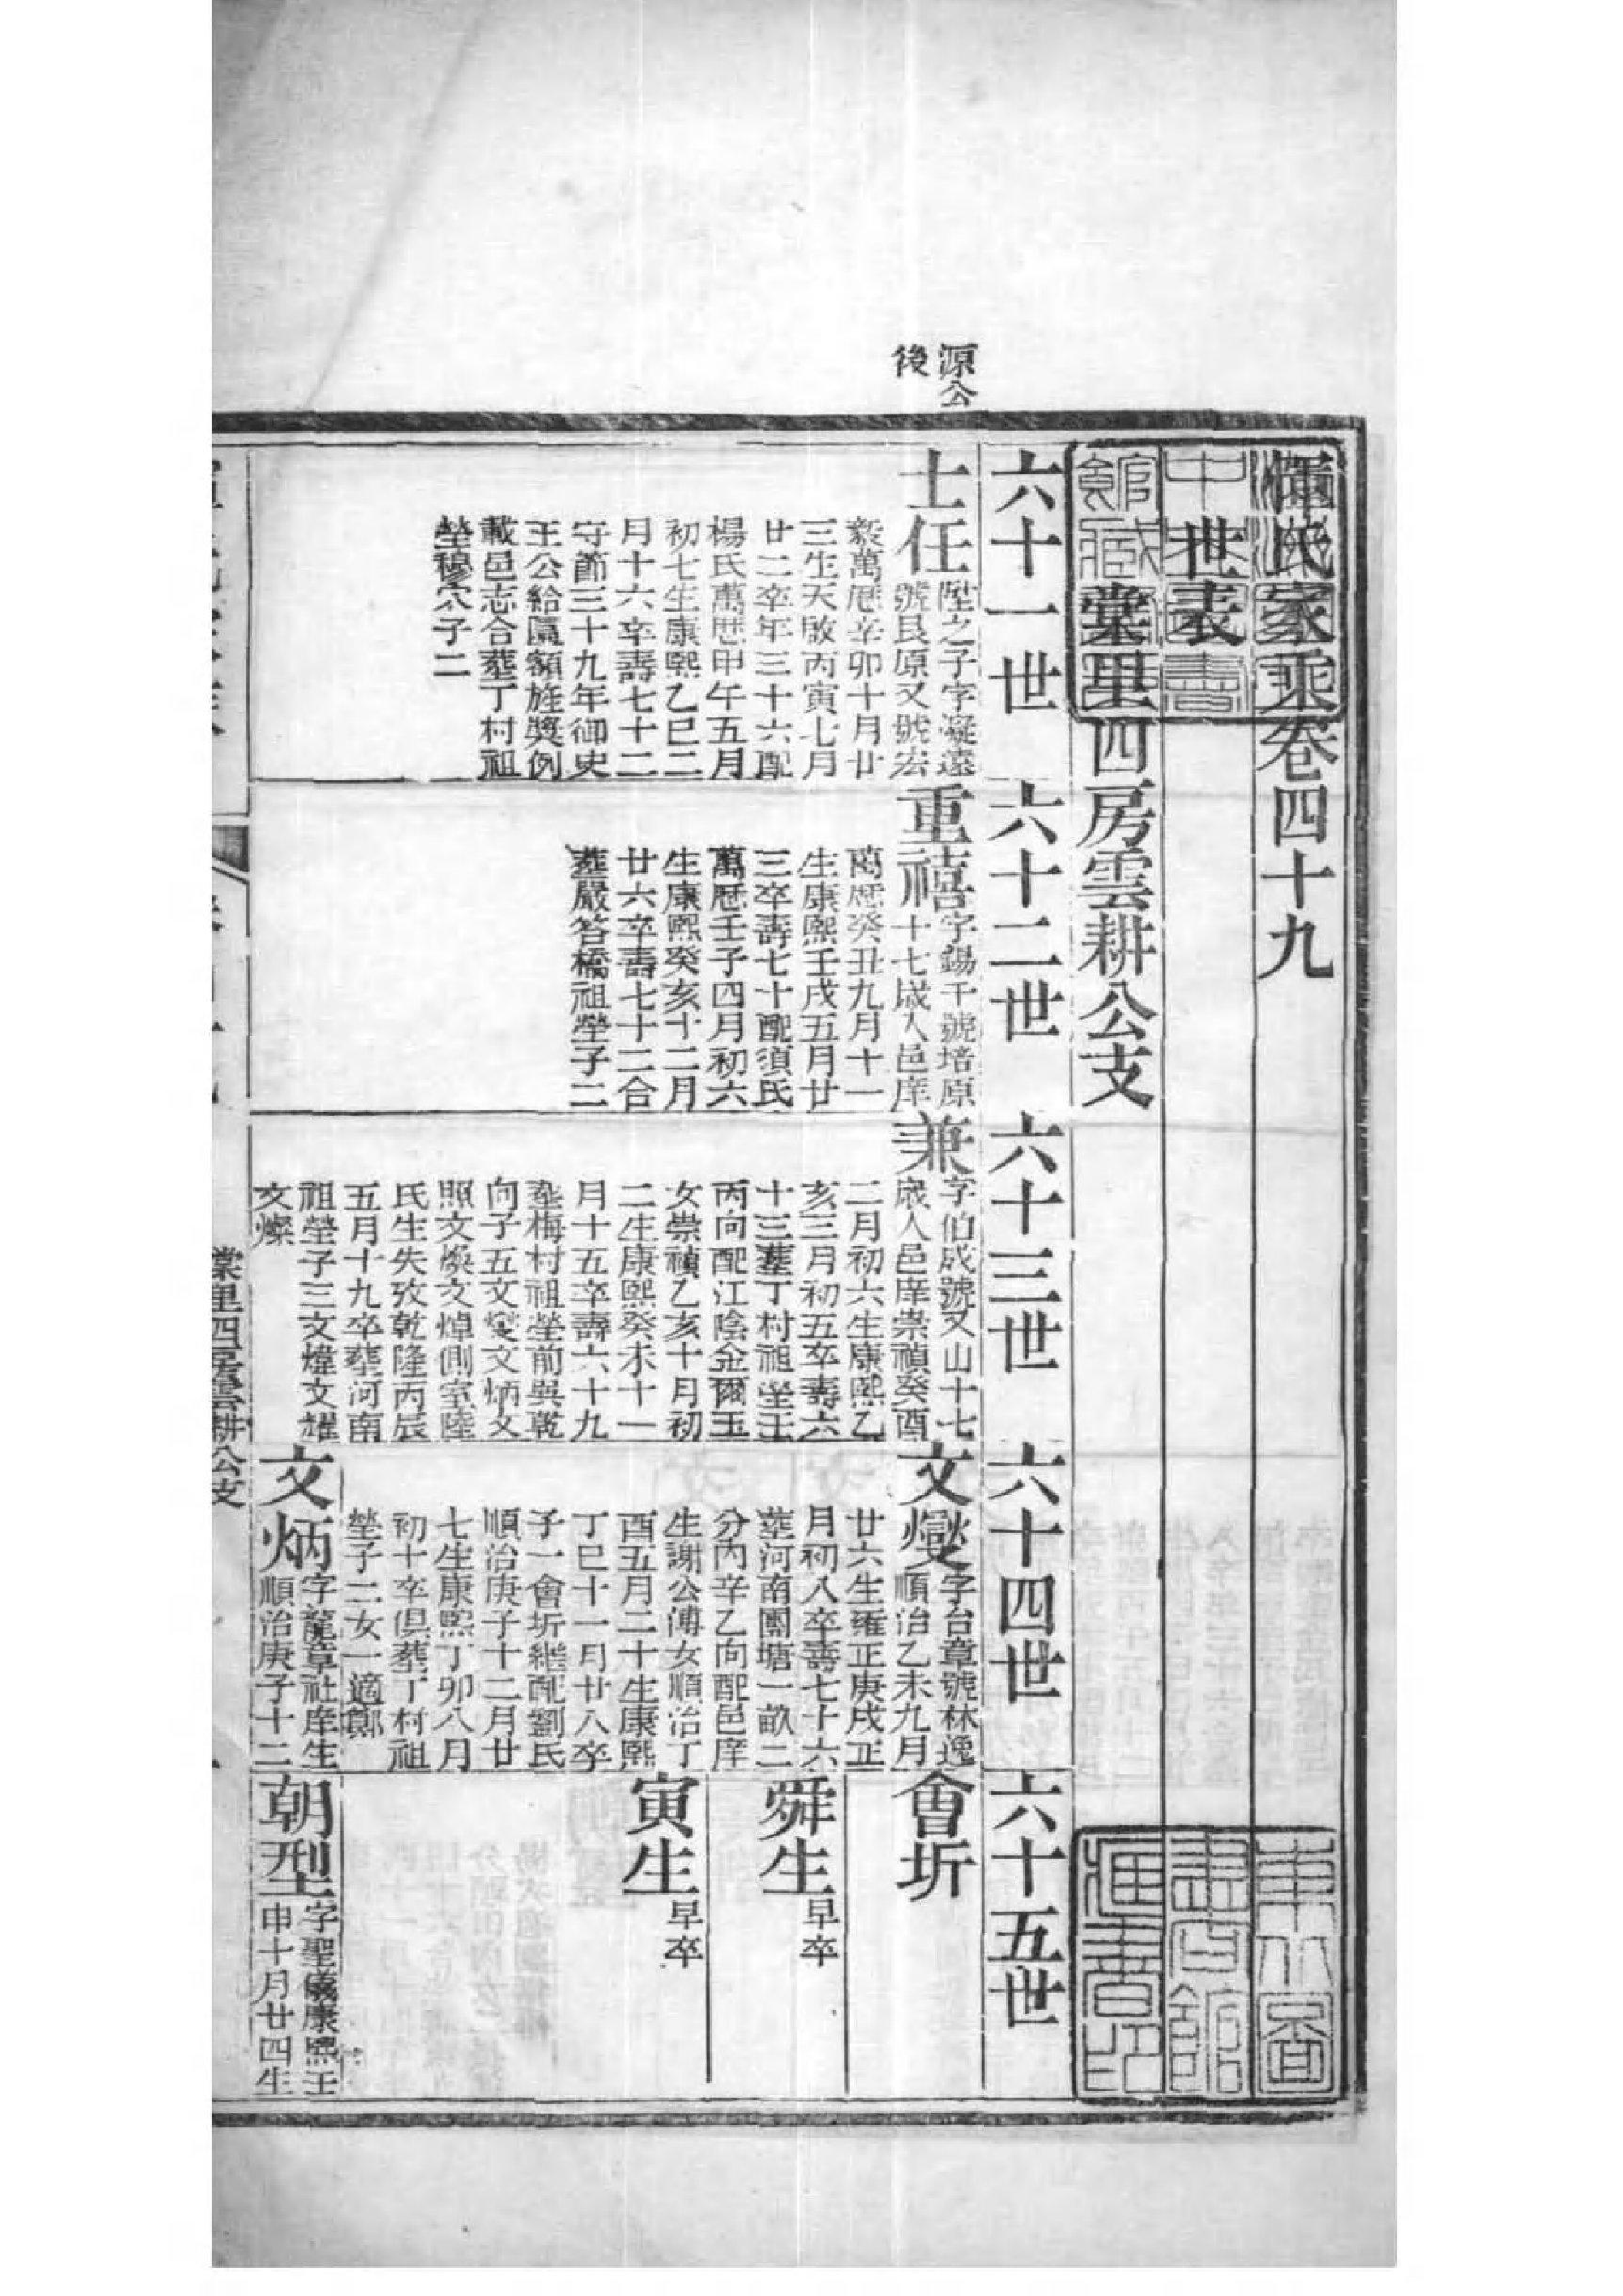 惲氏家乘卷四十九
世表
棠里四房雲耕公支
源公
後
六十一世
六十二世
六十三世
六十四世
六十五世
士任
陞之子字凝遠
號艮原又號宏
毅萬厯辛卯十月廿
三生天啟丙寅七月
廿二卒年三十六配
楊氏萬厯甲午五月
初七生康熙乙巳二
月十六卒壽七十二
守節三十九年御史
王公給匾額旌獎例
載邑志合塟丁村祖
塋穆穴子二
重禧
字錫千號培原
十七歲入邑庠
萬厯癸丑九月十一
生康熙壬戌五月廿
三卒壽七十配須氏
萬厯壬子四月初六
生康熙癸亥十二月
廿六卒壽七十二合
塟嚴答橋祖塋子二
兼
字伯成號又山十七
歲入邑庠崇禎癸酉
二月初六生康熙乙
亥三月初五卒壽六
十三塟丁村祖塋壬
丙向配江陰金爾玉
女崇禎乙亥十月初
二生康熙癸未十一
月十五卒壽六十九
塟梅村祖塋前巽乾
向子五文燮文炳文
照文煥文焯側室陸
氏生失攷乾隆丙辰
五月十九卒塟河南
祖塋子三文煒文耀
文燦
文燮
字台章號林逸
順治乙未九月
廿六生雍正庚戌正
月初八卒壽七十六
塟河南團塘一畝二
分內辛乙向配邑庠
生謝公溥女順治丁
酉五月二十生康熙
丁巳十一月廿八卒
子一會圻繼配劉氏
順治庚子十二月廿
七生康熙丁卯八月
初十卒俱塟丁村祖
塋子二女一適鄭
文炳
字龍章社庠生
順治庚子十二
會圻
舜生
早卒
寅生
早卒
朝型
字聖儀康熙壬
申十月廿四生
棠里四房雲耕公支